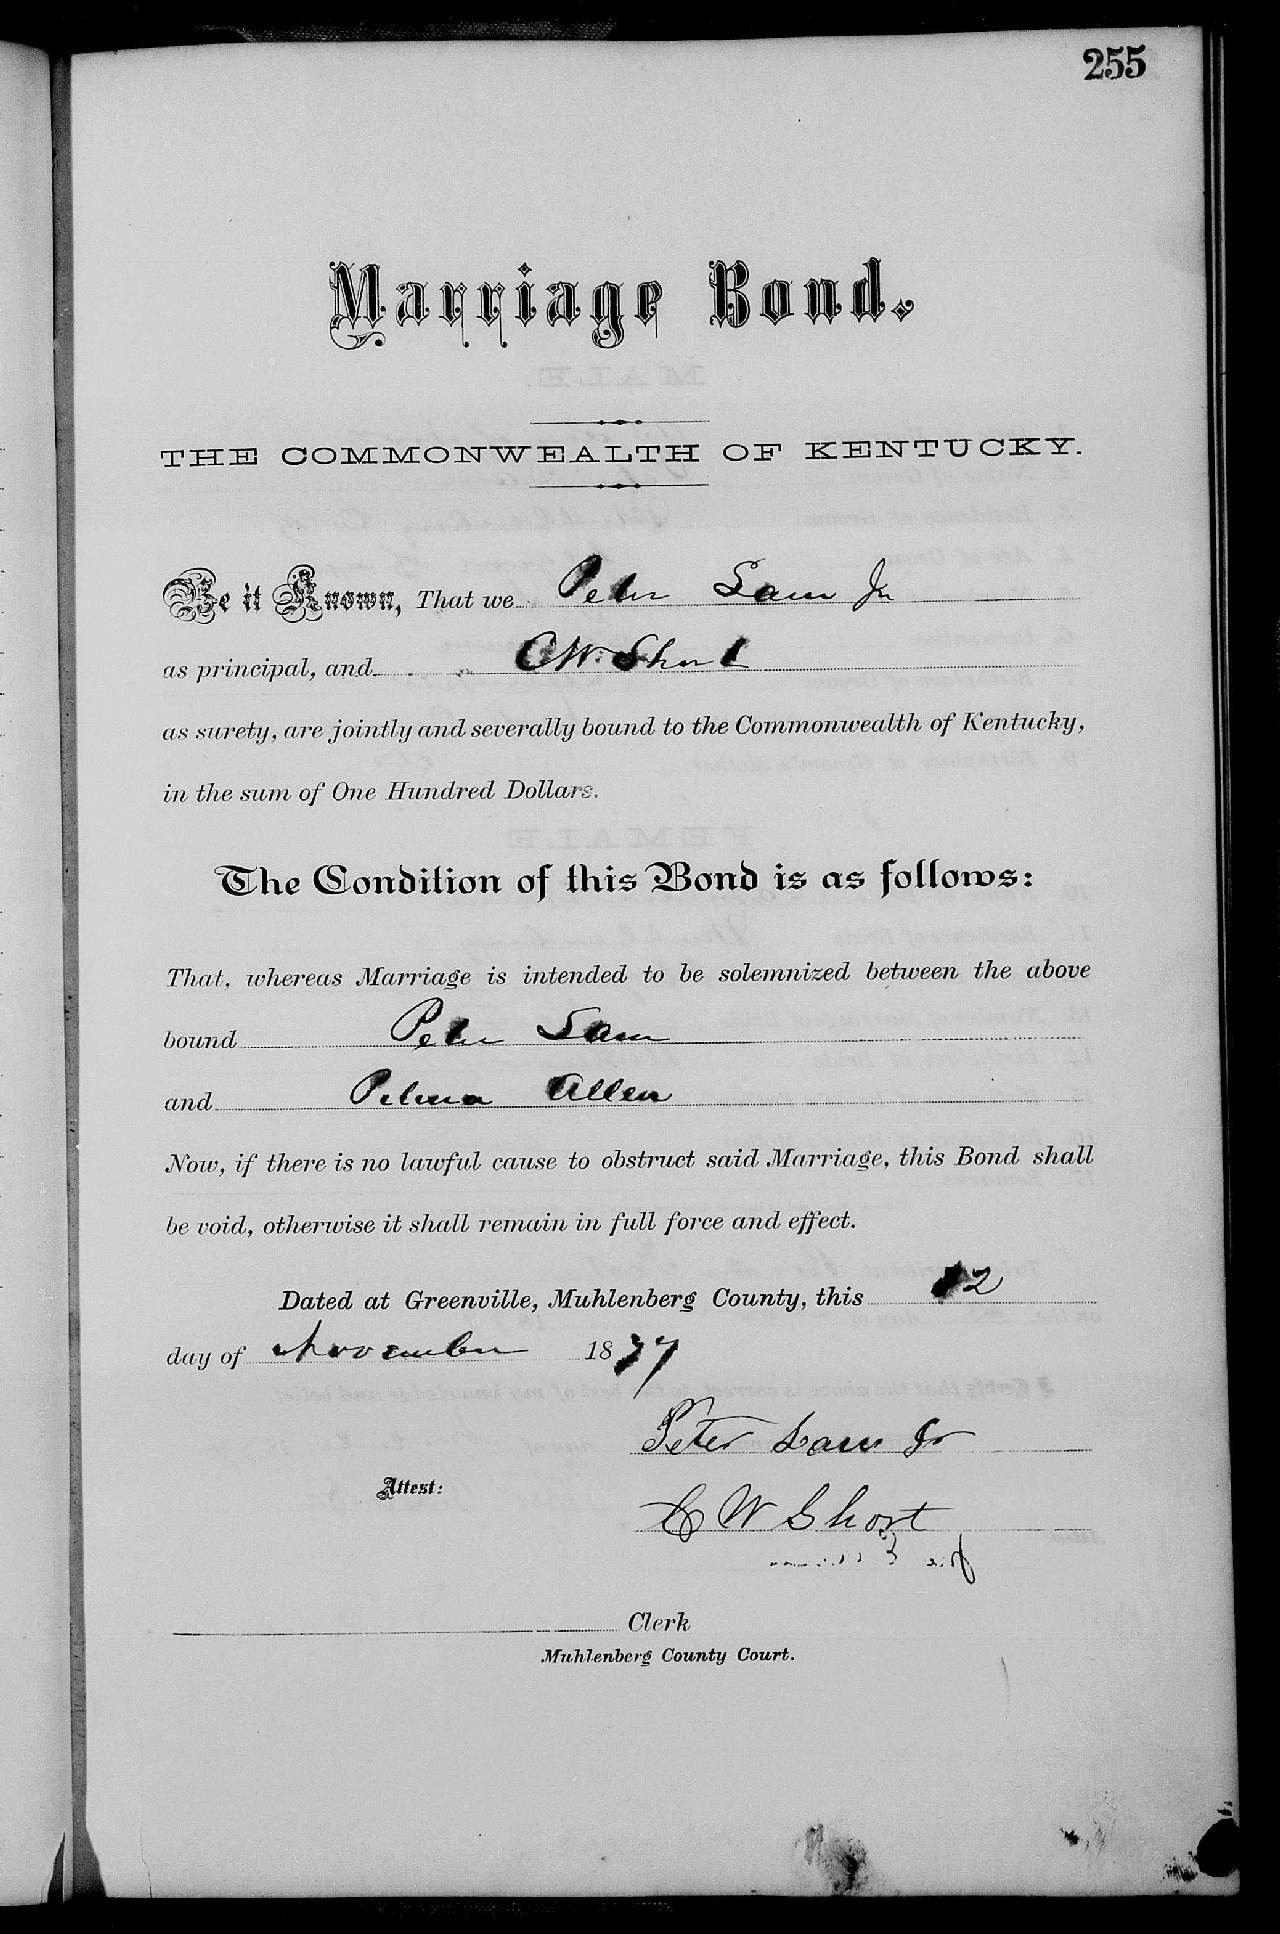 255
Marriage Bond.
THE COMMONWEALTH OF KENTUCKY.
Be it Known, That we Peter Sam Jr
as principal, and C W Short
as surety, are jointly and severally bound to the Commonwealth of Kentucky,
in the sum of One Hundred Dollars.
The Condition of this Bond is as follows:
That, whereas Marriage is intended to be solemnized between the above
bound Peter Sam
and Allen
Now, if there is no lawful cause to obstruct said Marriage, this Bond shall
be void, otherwise it shall remain in full force and effect.
Dated at Greenville, Muhlenberg County, this 12
day of November 1877
Peter Sam Jr
Attest:
C W Short
Clerk
Muhlenberg County Court.